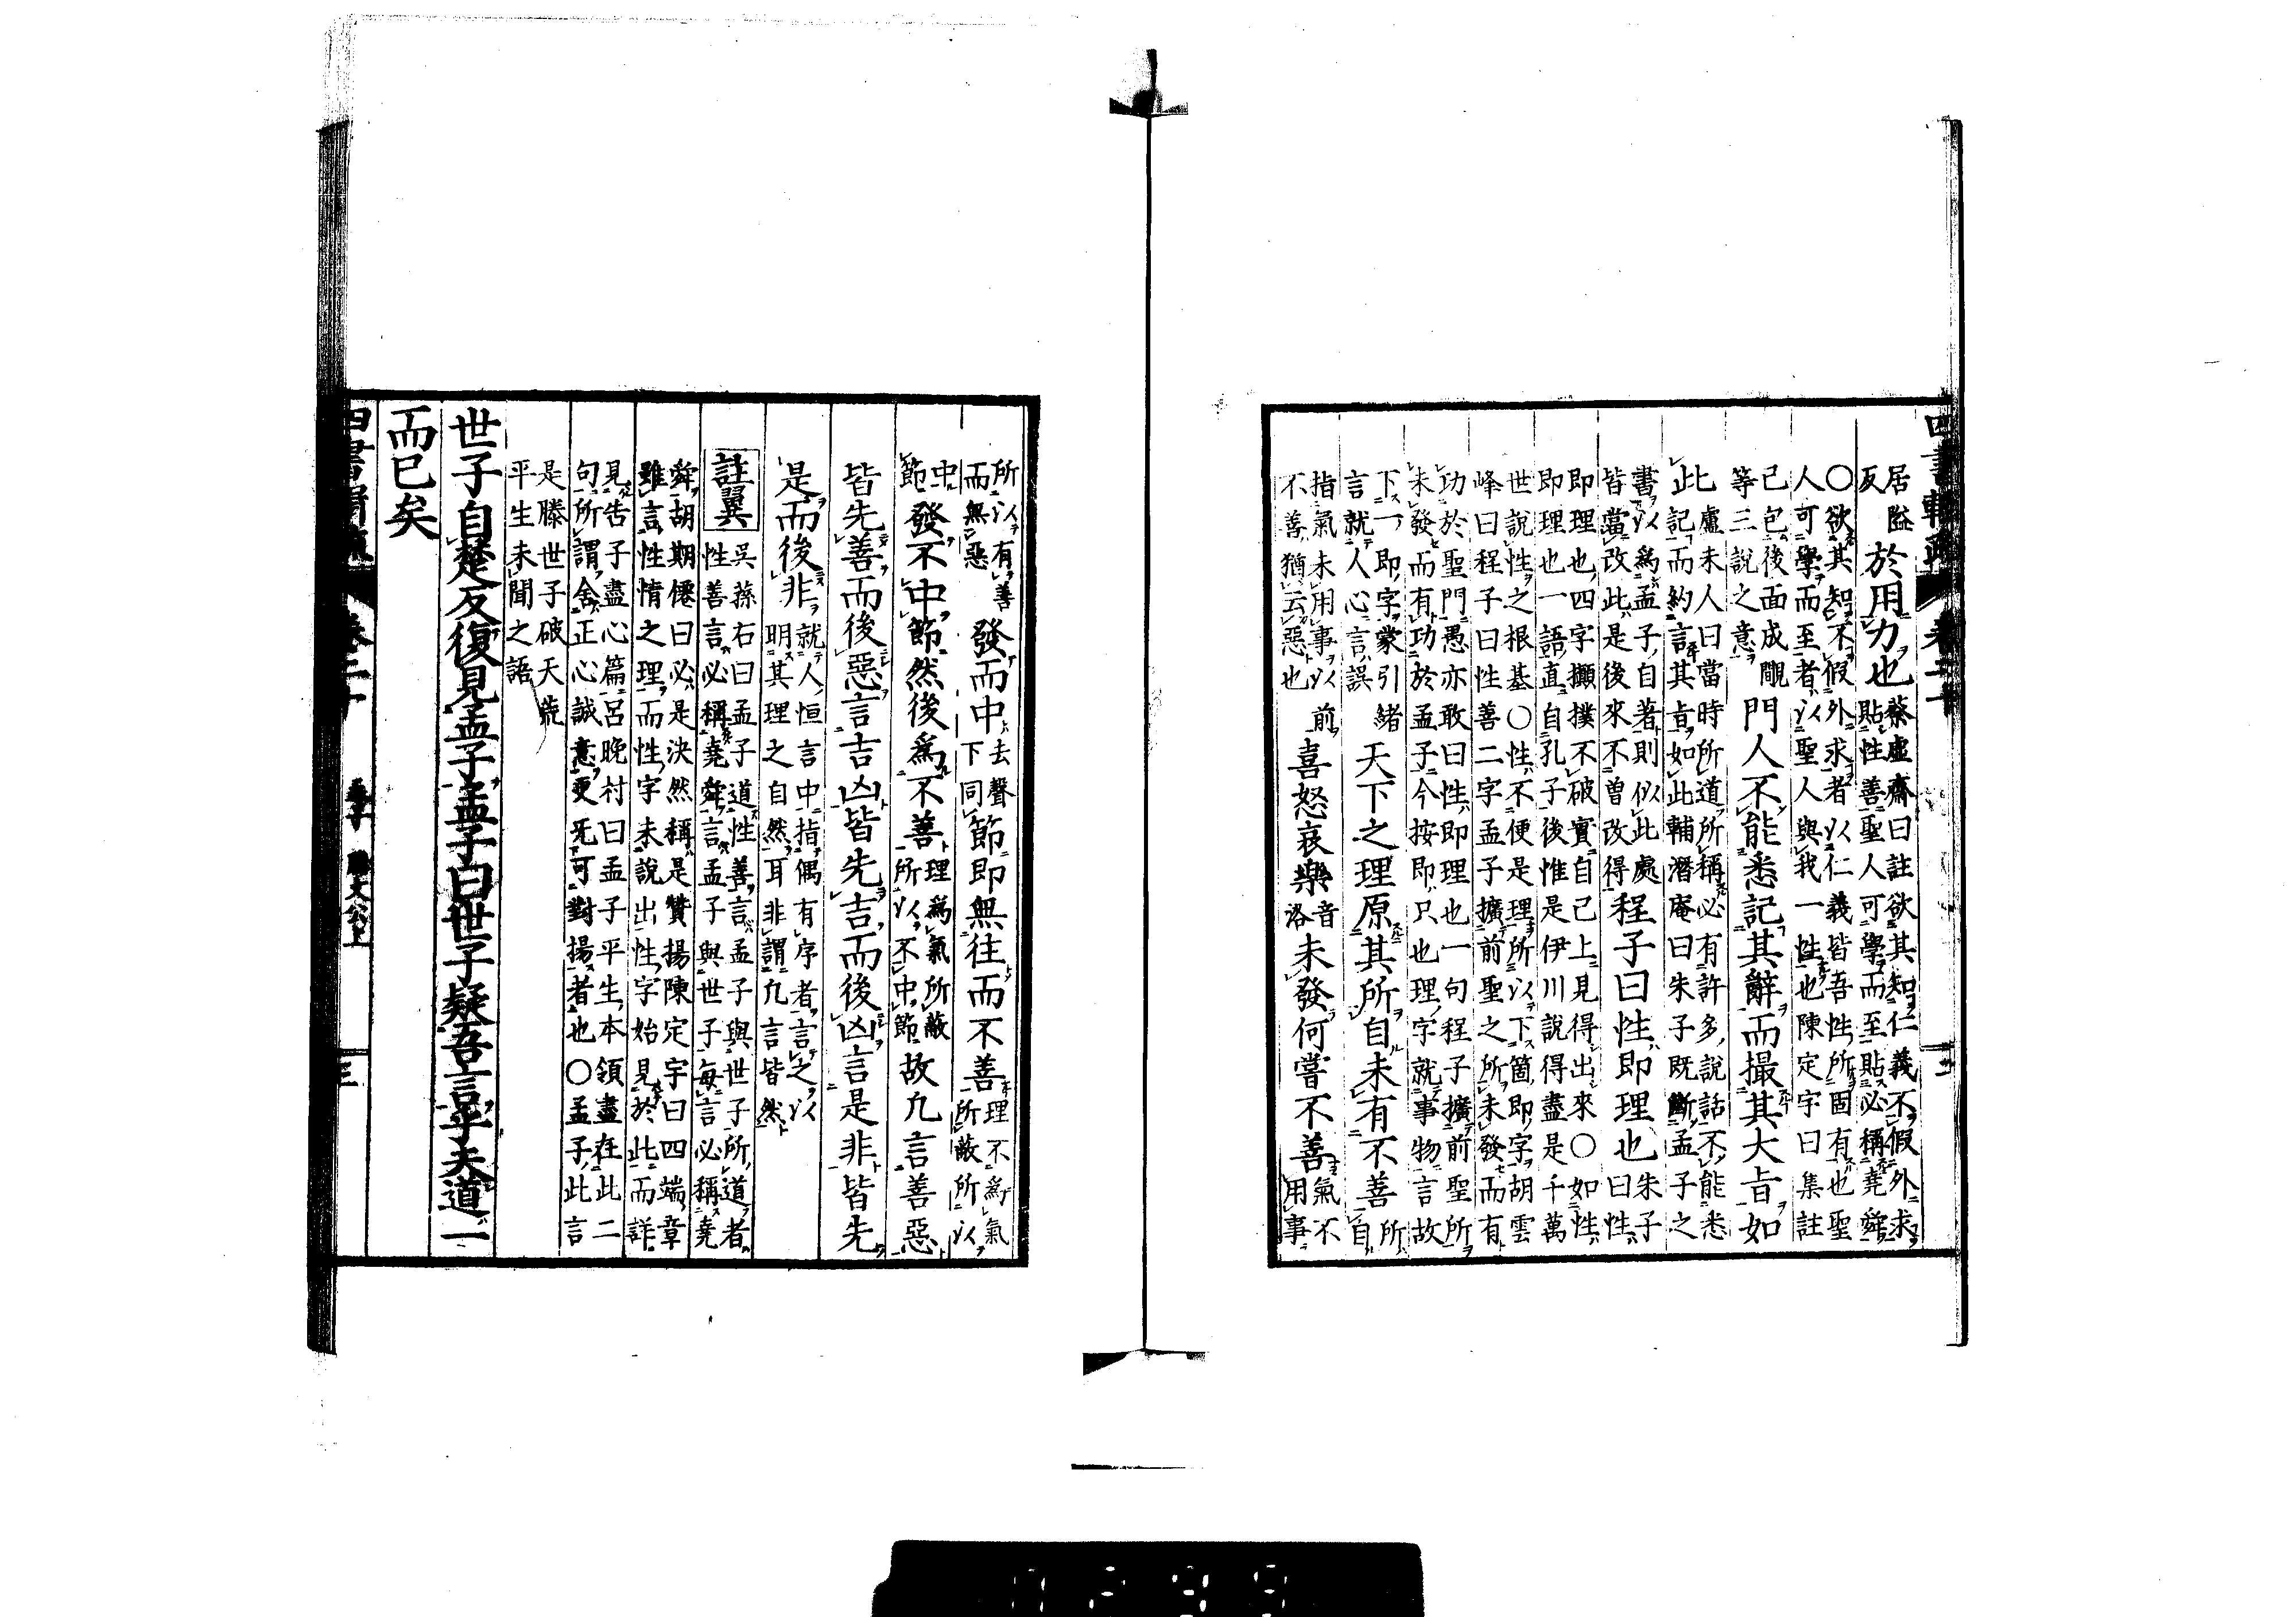 四書輯疏 卷二十 三
居隘
反
於用力也
蔡虛齋曰註欲其知仁義不假外求
貼性善聖人可學而至貼必稱堯舜
〇欲其知不假外求者以仁義皆吾性所固有也聖
人可學而至者以聖人與我一性也陳定宇曰集註
已包後面成覵
等三說之意
門人不能悉記其辭而撮其大旨如
此
盧未人曰當時所道所稱必有許多說話不能悉
記而約言其旨如此輔潛庵曰朱子既斷孟子之
書以為孟子自著則似此處
皆當改此是後來不曾改得
程子曰性即理也
朱子
曰性
即理也四字攧撲不破實自己上見得出來〇如性
即理也一語直自孔子後惟是伊川說得盡是千萬
世說性之根基〇性不便是理所以下箇即字胡雲
峰曰程子曰性善二字孟子擴前聖之所未發而有
功於聖門愚亦敢曰性即理也一句程子擴前聖所
未發而有功於孟子今按即只也理字就事物言故
下一即字蒙引
言就人心言誤
天下之理原其所自未有不善
所
自
指氣未用事以前
不善猶云惡也
喜怒哀樂
音
洛
未發何嘗不善
氣不
用事
所以有善
而無惡
發而中
去聲
下同
節即無往而不善
理不為氣
所蔽所以
中
節
發不中節然後為不善
理為氣所蔽
所以不中節
故凡言善惡
皆先善而後惡言吉凶皆先吉而後凶言是非皆先
是而後非
就人恒言中指偶有序者言之以
明其理之自然耳非謂凡言皆然
註翼
吳蓀右曰孟子道性善言孟子與世子所道者
性善言必稱堯舜言孟子與世子每言必稱堯
舜胡期僊曰必是決然稱是贊揚陳定宇曰四端章
雖言性情之理而性字未說出性字始見於此而詳
見告子盡心篇呂晚村曰孟子平生本領盡在此二
句所謂舍正心誠意更旡可對揚者也〇孟子此言
是滕世子破天荒
平生未聞之語
世子自楚反復見孟子孟子曰世子疑吾言乎夫道一
而已矣
四書輯疏 卷二十 孟子 滕文公上 三